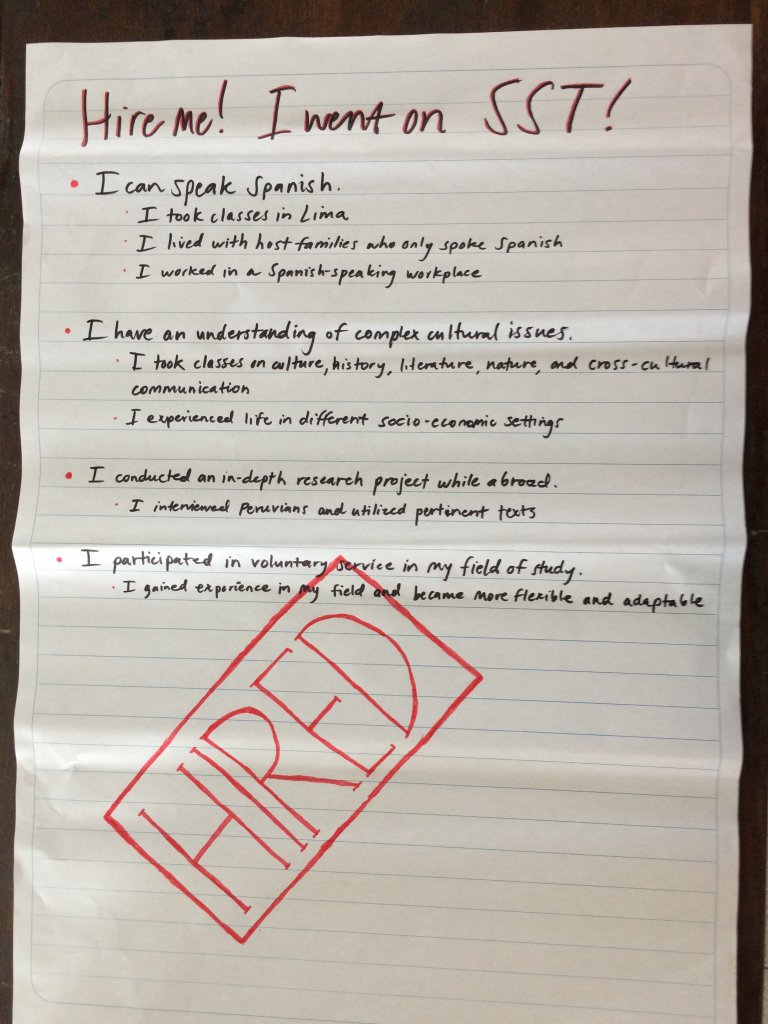 Hire me! I went on SST!
• I can speak Spanish.
· I took classes in Lima
· I lived with host families who only spoke Spanish
· I worked in a Spanish-speaking workplace
• I have an understanding of complex cultural issues.
· I took classes on culture, history, literature, nature, and cross-cultural
communication
· I experienced life in different socio-economic settings
• I conducted an in-depth research project while abroad.
· I interviewed Peruvians and utilized pertinent texts
• I participated in voluntary service in my field of study.
· I gained experience in my field and became more flexible and adaptable
HIRED